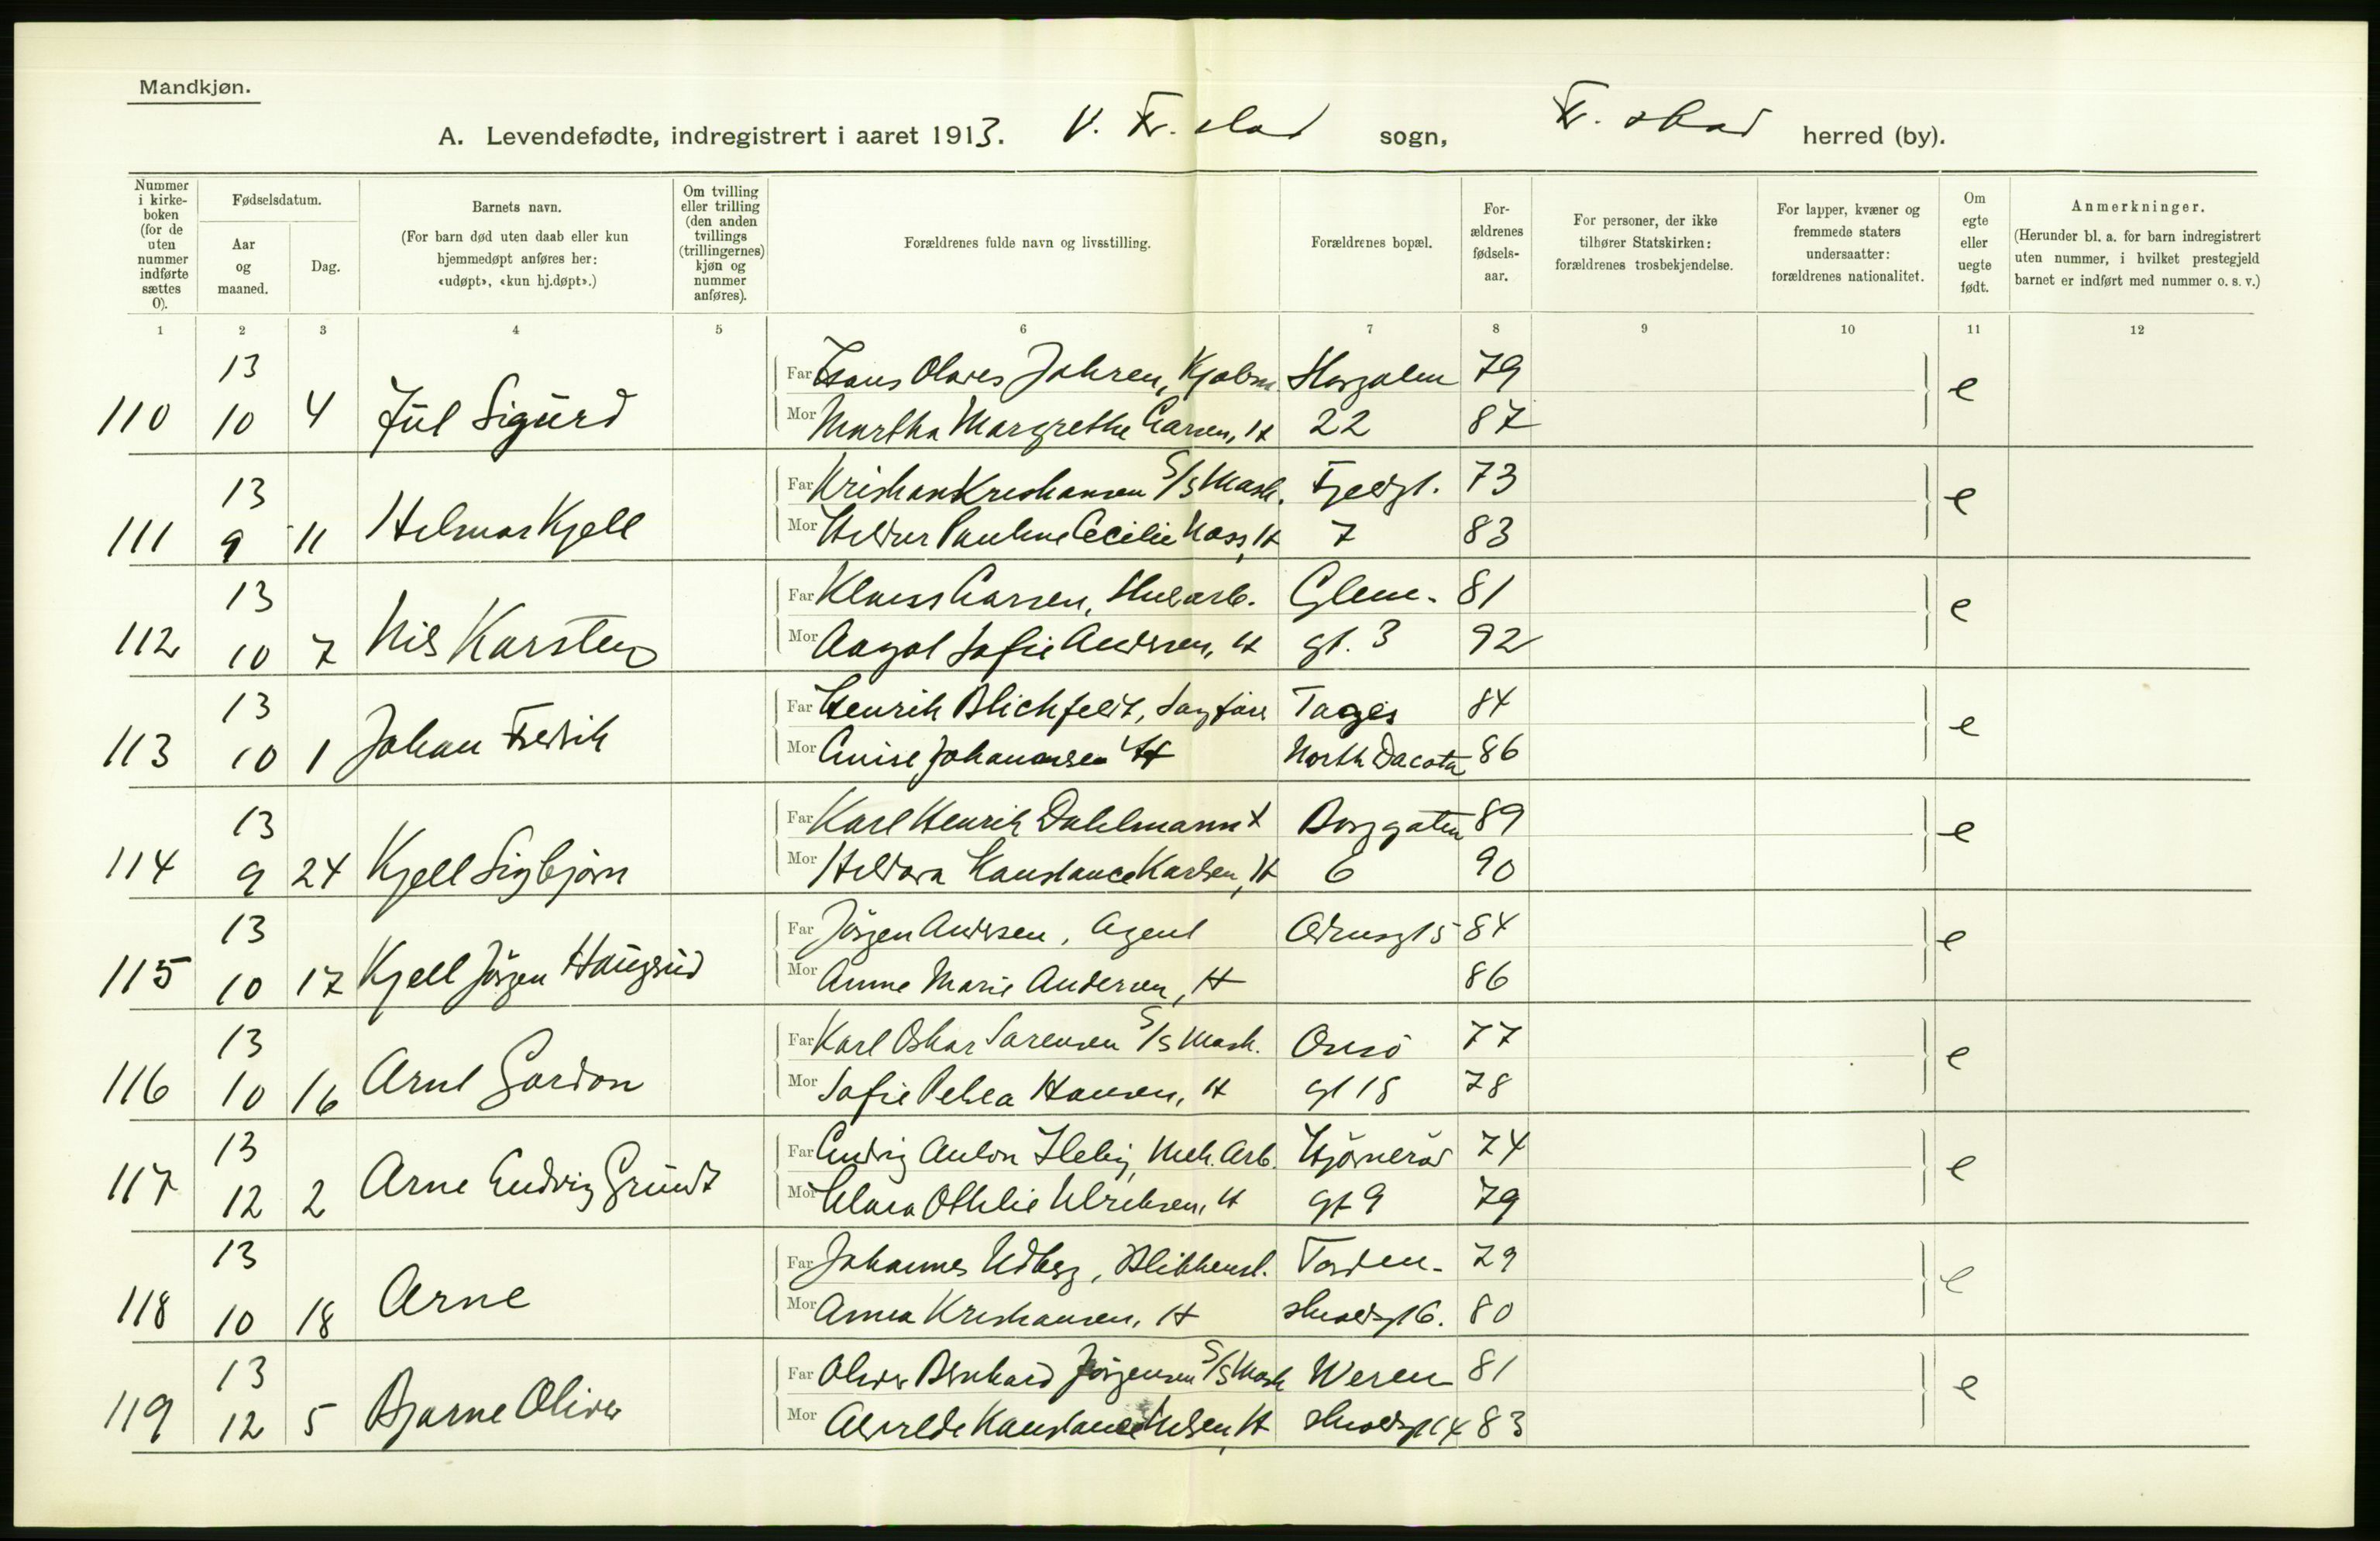 Mandkjøn.
A. Levendefødte, indregistrert i aaret 1913. V. Fr.stad sogn, Fr.stad herred (by).
Nummer i kirke-boken (for de uten nummer indførte sættes 0).
Fødselsdatum.
Aar og maaned.
Dag.
Barnets navn.
(For barn død uten daab eller kun hjemmedøpt anføres her: «udøpt», «kun hj.døpt».)
Om tvilling eller trilling (den anden tvillings (trillingernes) kjøn og nummer anføres).
Forældrenes fulde navn og livsstilling.
Forældrenes bopæl.
For-ældrenes fødsels-aar.
For personer, der ikke tilhører Statskirken: forældrenes trosbekjendelse.
For lapper, kvæner og fremmede staters undersaatter: forældrenes nationalitet.
Om egte eller uegte født.
Anmerkninger.
(Herunder bl. a. for barn indregistrert uten nummer, i hvilket prestegjeld barnet er indført med nummer o. s. v.)
1 2 3 4 5 6 7 8 9 10 11 12
13 Far Hans Olaves Jahren, 79
110 10 4 Jul Sigurd Mor Martha Margrethe Larsen, H 22 87 e
13 Far Kristian Kristiansen S/S Mask. Fjeldgt. 73
111 9 11 Hilmar Kjell Mor Pauline Cecilie H 7 83 e
13 Far Klaus Larsen, Glem- 81
112 10 7 Nils Karsten Mor Aagot Sofie Andersen, H gt. 3 92 e
13 Far Henrik Blichfeldt, Sagfører 84
113 10 1 Johan Fredrik Mor Johannesen H North Dacota 86 e
13 Far Karl Henrik Dahlmann + Borggaten 89
114 9 24 Kjell Sigbjørn Mor Konstance Karlsen, H 6 90 e
13 Far Jörgen Andersen, Agent 84
115 10 17 Kjell Jörgen Haugrud Mor Anne Marie Andersen, H 86 e
13 Far Karl Oskar Sørensen S/S Mask. 77
116 10 16 Arnt Gordon Mor Sofie Petrea Hansen, H gt 18 78 e
13 Far Ludvig Anton Mek. Arb. 74
117 12 2 Arne Ludvig Grundt Mor Klara Othilie Ulriksen, H gt 9 79 e
13 Far Johannes Udberg, Blikkensl. Torden- 79
118 10 18 Arne Mor Anna Kristiansen, H skioldsgt 6. 80 e
13 Far Oliver Bernhard Jørgensen S/S Mask Weren 81
119 12 5 Bjarne Oliver Mor Alvilde Konstance Nilsen, H skioldsgt 14 83 e